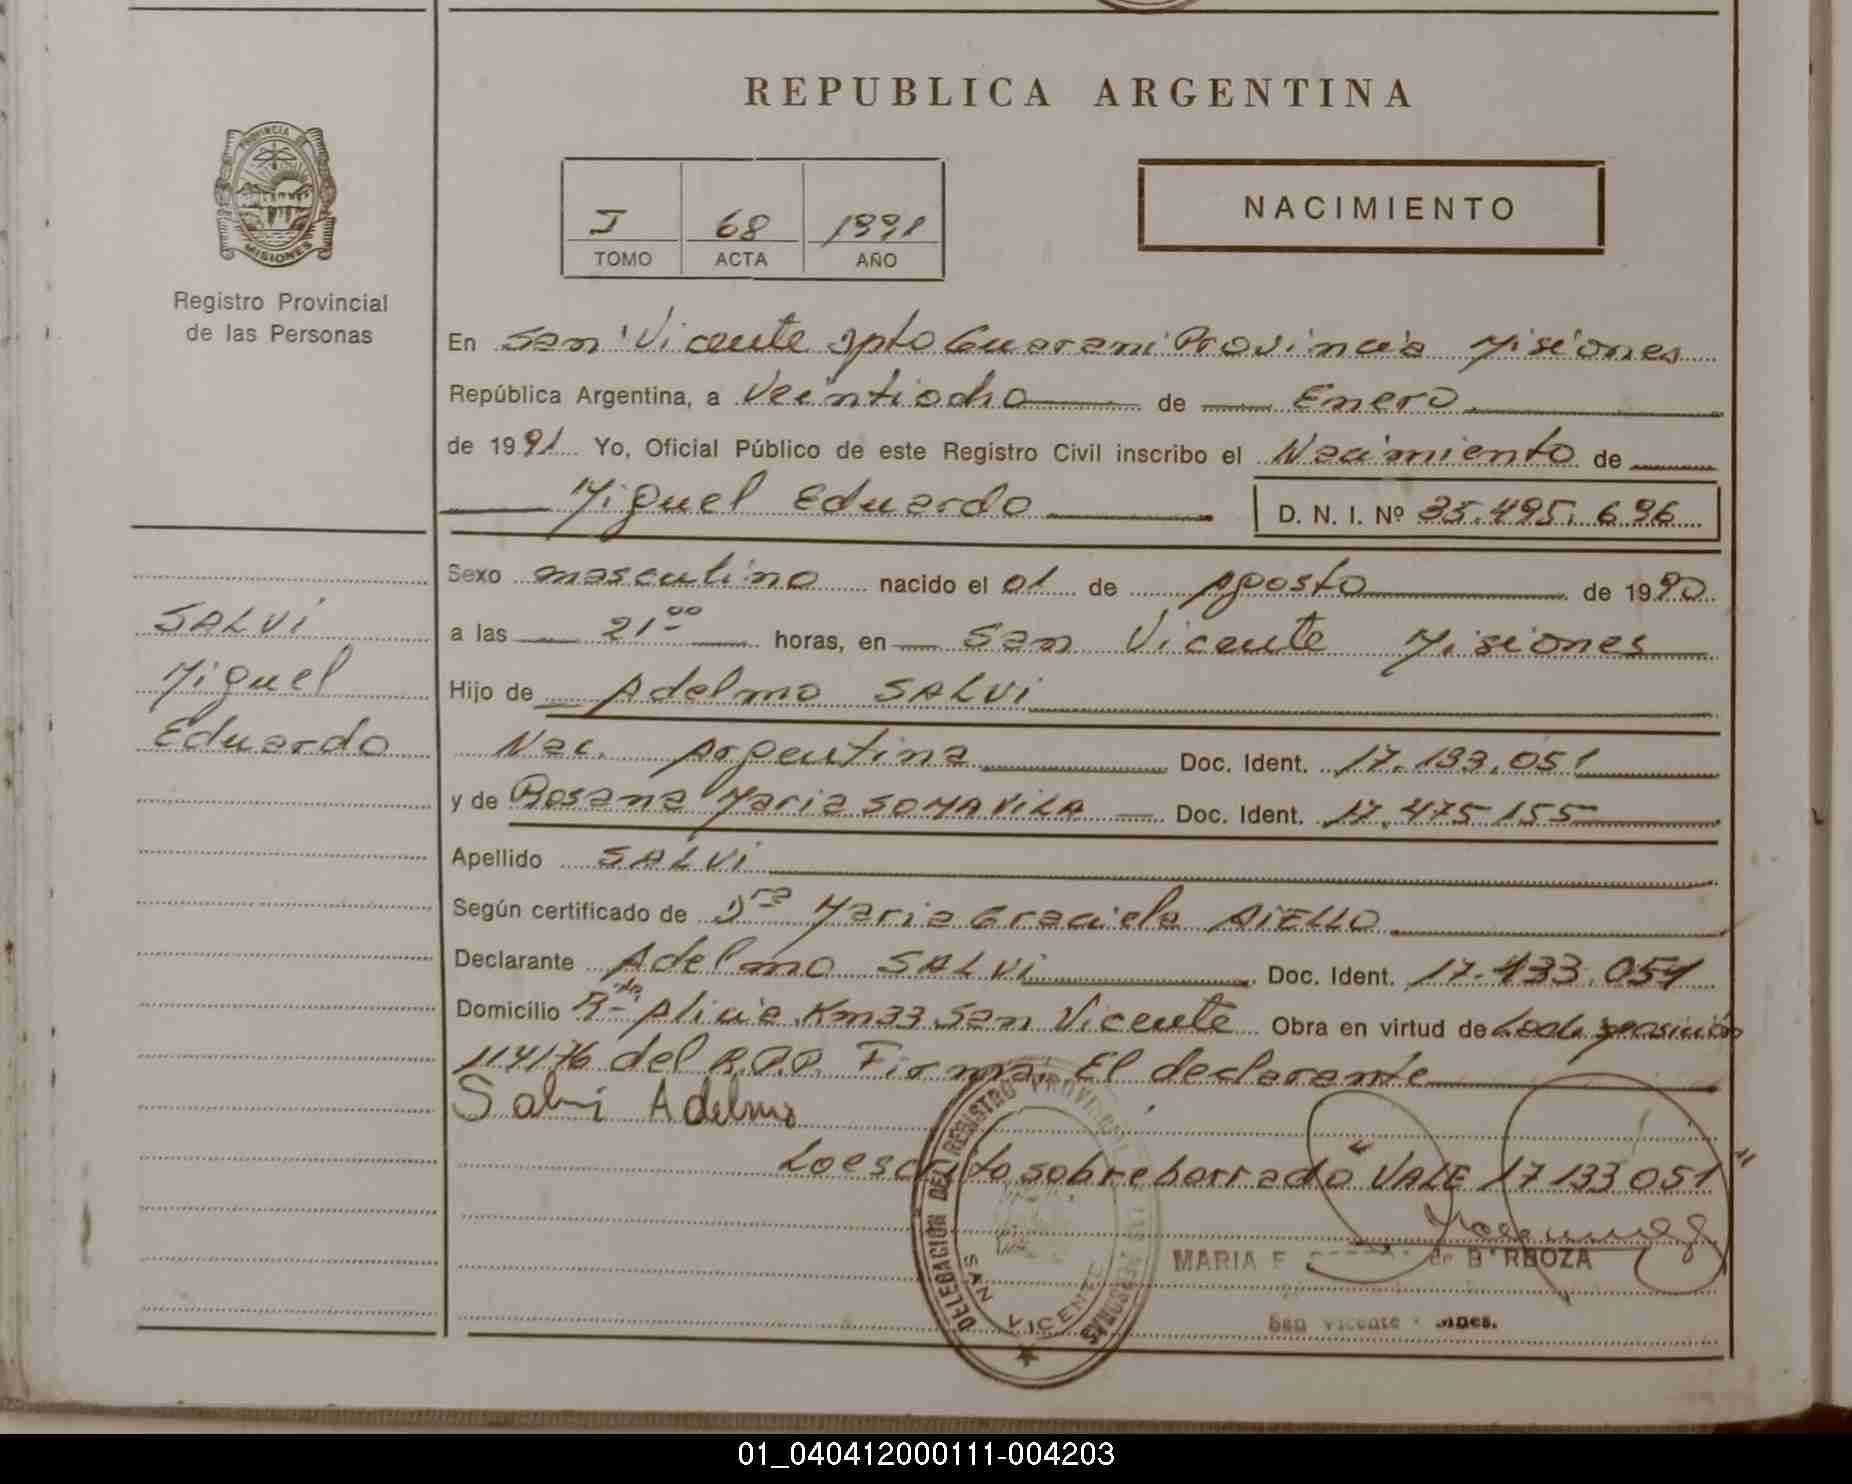 REPUBLICA ARGENTINA
PROVINCIA DE
MISIONES
Registro Provincial
de las Personas
I 68 1991
TOMO ACTA AÑO
NACIMIENTO
En San Vicente Dpto Guarani Provincia Misiones
República Argentina, a Veintiocho de Enero
de 1991 Yo, Oficial Público de este Registro Civil inscribo el Nacimiento de
Miguel Eduardo D. N. I. Nº 35.495.696
Sexo masculino nacido el 01 de Agosto de 1990
SALVI
Miguel
Eduardo
a las 21 00 horas, en San Vicente Misiones
Hijo de Adelmo SALVI
Nac. Argentina Doc. Ident. 17.133.051
y de Rosana Maria SOMAVILA Doc. Ident. 17.475 155
Apellido SALVI
Según certificado de Dra Maria Graciela AIELLO
Declarante Adelmo SALVI Doc. Ident. 17.133.051
Domicilio Alicia Km33 San Vicente Obra en virtud de
114/76 del R.P.P. Firma: El declarante
Salvi Adelmo
Lo escrito sobreborrado "VALE 17 133 051"
DELEGACION DEL REGISTRO PROVINCIAL DE LAS PERSONAS
SAN VICENTE
MARIA E de BARBOZA
San Vicente - Mnes.
01_040412000111-004203